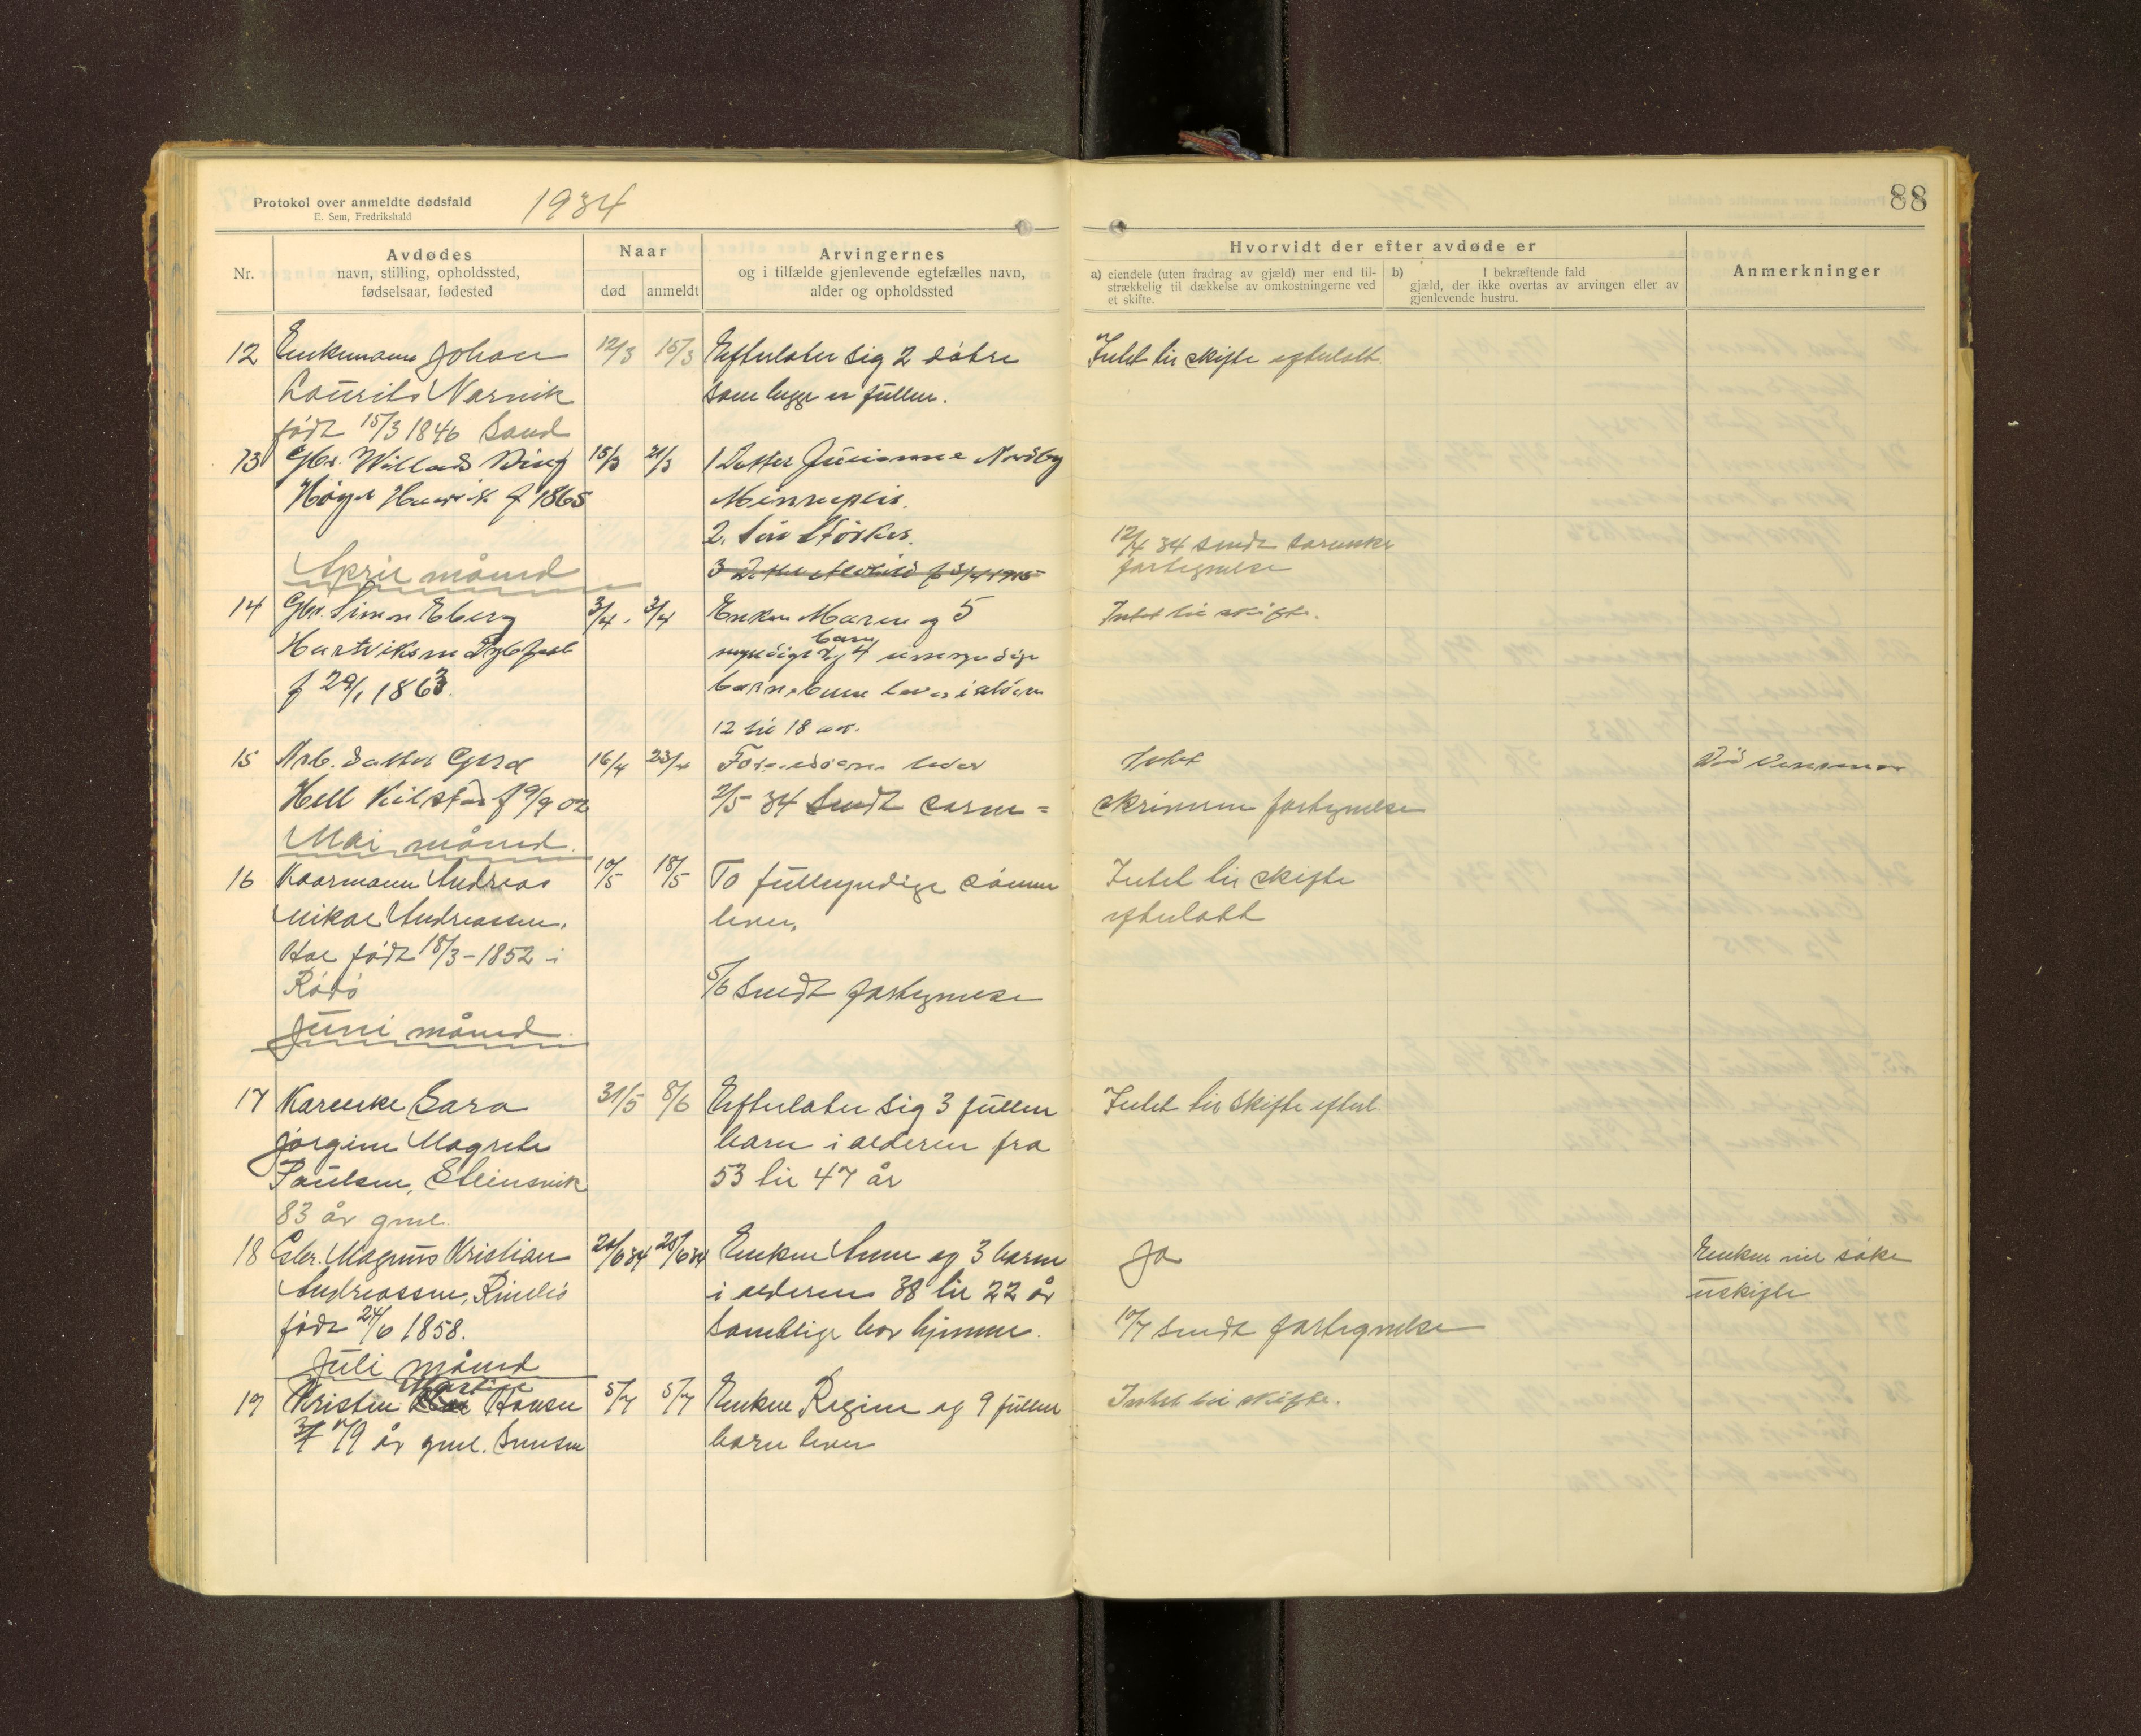 Protokol over anmeldte dødsfald
E. Sem, Fredrikshald
1934
88
Nr.
Avdødes
navn, stilling, opholdssted,
fødselsaar, fødested
Naar
død
anmeldt
Arvingernes
og i tilfælde gjenlevende egtefælles navn,
alder og opholdssted
Hvorvidt der efter avdøde er
a) eiendele (uten fradrag av gjæld) mer end til-
strækkelig til dækkelse av omkostningerne ved
et skifte.
b) I bekræftende fald
gjæld, der ikke overtas av arvingen eller av
gjenlevende hustru.
Anmerkninger
12 Enkemann Johan 12/3 15/3 Efterlater sig 2 døtre Intet til skifte efterlatt
Laurits Narvik som begge er fullm.
født 15/3 1846 Sand
13 Gbr. 15/3 21/3 1 Datter Nordby
f 1865
2. Søn
12/4 34 sendt
fortegnelse
April måned 3 Datter
14 Gbr. Simon Eberg 3/4 3/4 Enken Maren og 5 Intet til skifte.
Hartviksen
myndige barn og 4 umyndige
f 29/1 1863. barnebarn i alderen
12 til 18 aar.
15 Arb. datter Gerd 16/4 23/4 Foreldrene lever Intet
f 9/9 02 2/5 34 Sendt
fortegnelse
Mai måned.
16 Kaarmann Andreas 10/5 18/5 To fullmyndige sønner Intet til skifte
Mikal Andreassen, lever. efterlatt
født 18/3 - 1852 i
Rødø 5/6 Sendt fortegnelse
Juni måned.
17 Sara 31/5 8/6 Efterlater sig 3 fullm Intet til skifte efterl.
Jørgine Magrete barn i alderen fra
Paulsen, Steinsvik 53 til 47 år
83 år gml.
18 Gbr. Magnus Kristian Enken Anne og 3 barn Ja Enken vil søke
Andreassen, i alderen 38 til 22 år uskifte
født 24/6 1858. Samtlige bor hjemme. 10/7 sendt fortegnelse
Juli måned
19 Kristen Martin Hansen 5/7 5/7 Enken Regine og 9 fullm Intet til skifte.
79 år gml. barn lever